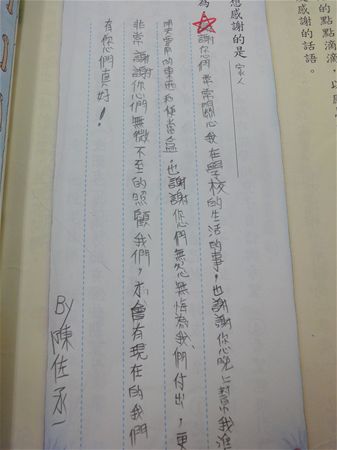 的點點滴滴，以
感謝的話語。
想感謝的是 家人
為
謝你們常常關心我在學校的生活的事，也謝謝你晚上幫我準
需要的東西和便當盒，也謝謝你們無怨無悔為我們付出，更
非常謝謝你們無微不至的照顧我們，才會有現在的我們
有你們真好！
By 陳佐承